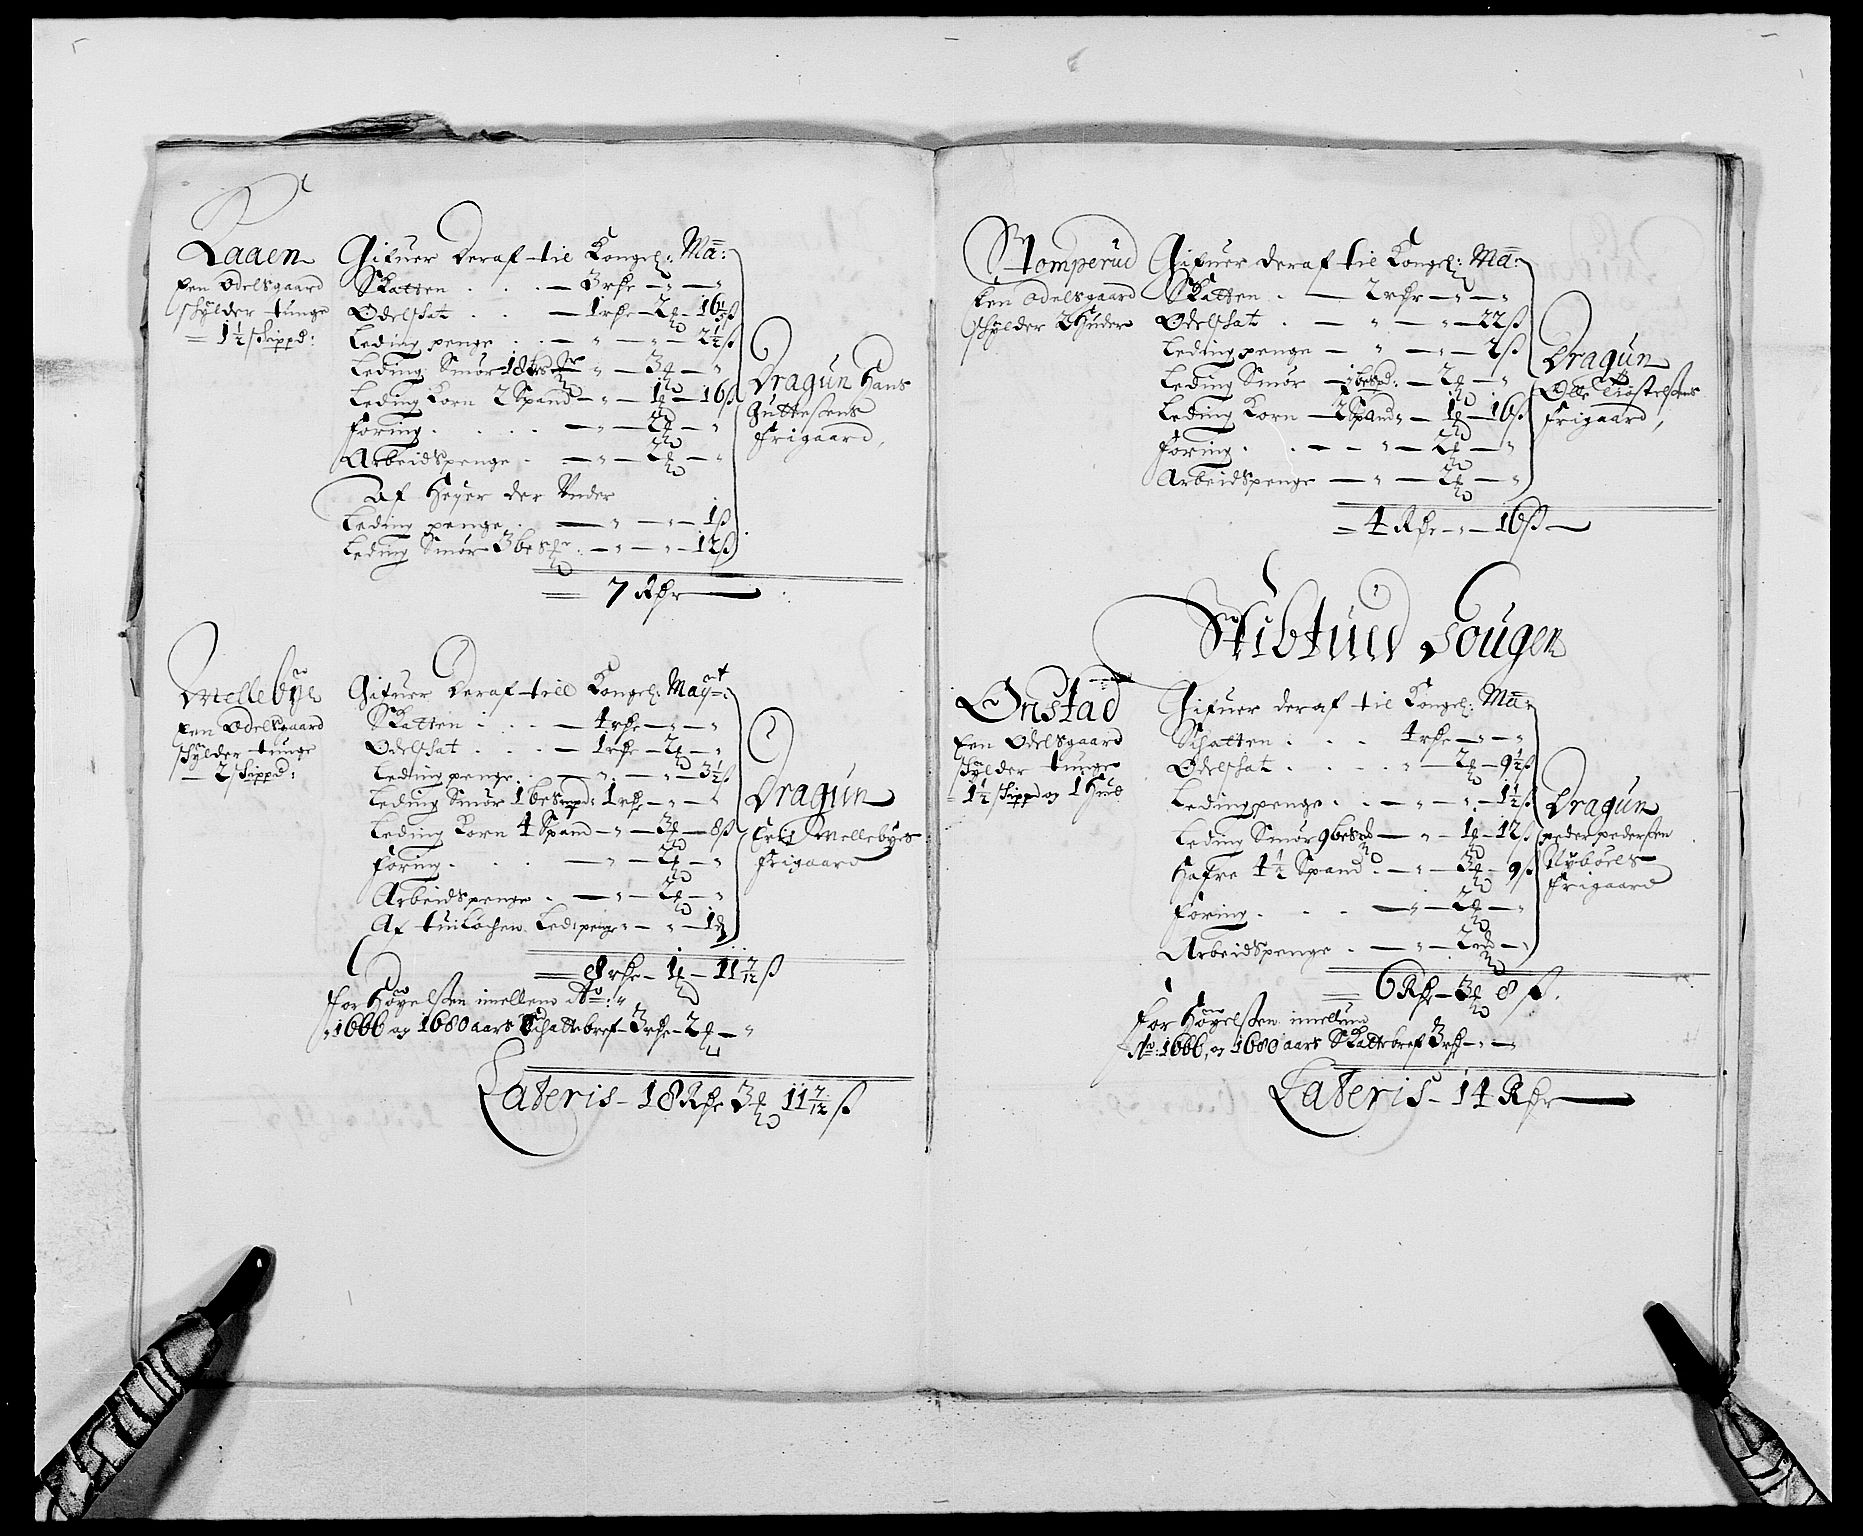 Laaen
Een Odelsgaard
schylder tunge
= 1½ skippd:
Gifuer Deraf til Kongel: Ma:
Skatten . . . — 3 rdr — „ — „
Odelskat . . — 1 rdr — 2 ort — 16½ ß
Leding penge . . — „ — „ — 2½ ß
Leding Smør 18 — „ — 3 ort — „
Leding Korn 2 Spand — „ — 1 ort — 16 ß
Foring . . . . — „ — 2 ort — „
Arbeidspenge . — „ — 2 ort — „
Af Heyer der Under
Leding penge . — „ — „ — 1 ß
Leding Smør 3 — „ — „ — 12 ß
Dragun Hans
Guttesens
Frigaard,
= 7 Rdr —
Mellebye
Een Odelsgaard
schylder tunge
— 2 skippd:
Gifuer Deraf till Kongel: Mayt:
Skatten . . . — 4 rdr — „ — „
Odelskat . . . — 1 rdr — 2 ort — „
Leding penge . . — „ — „ — 3½ ß
Leding Smør 1 1 rdr — „ — „
Leding Korn 4 Spand — „ — 3 ort — 8 ß
Foring . . . — „ — 2 ort — „
Arbeidspenge . — „ — 2 ort — „
Af Led: penge — „ — 1
Dragun
Mellebyes
Frigaard
= 8 rdr — 1 ort — 11 7/12 ß
For Høyelsen imellem Ao: „
„ 1666 og 1680 aars Schattebref — 3 rdr — 2 ort — „
Lateris — 18 Rdr 3 ort 11 7/12 ß
Stomperud
Een Odelsgaard
schylder 2 Huder
Gifuer deraf til Kongel: Ma:
Skatten . — 2 rdr — „ — „
Odelskat . — „ — „ — 22 ß
Leding penge — „ — „ — 2 ß
Leding Smør — 1 — 2 ort — „
Leding Korn — 2 Spand „ — 1 ort — 16 ß
Foring . . — „ — 2 ort — „
Arbeidspenge — „ — 2 ort — „
Dragun
Olle
Frigaard,
= 4 Rdr — „ — 16 ß —
Skibtued Sougen
Onstad
Een Odelsgaard
schylder tunge
1½ skippd og 1 Hud
Gifuer deraf til Kongel: Ma:
Schatten . . . 4 rdr — „ — „
Odelskat . . . . „ — 2 ort — 9½ ß
Leding penge . . — „ — „ — 1½ ß
Leding Smør 9 — „ — 1 ort — 12 ß
Hafre 4½ Spand . — „ — 3 ort — 9 ß
Foring . . . — „ — 2 ort — „
Arbeidspenge . — „ — 2 ort — „
Dragun
peder pedersen
Nyböels
Frigaard
= 6 Rdr — 3 ort 8 ß.
For Høyelsen imellum
Ao: 1666, og 1680 aars Skattebref 3 rdr — „ —
Lateris — 14 Rdr —